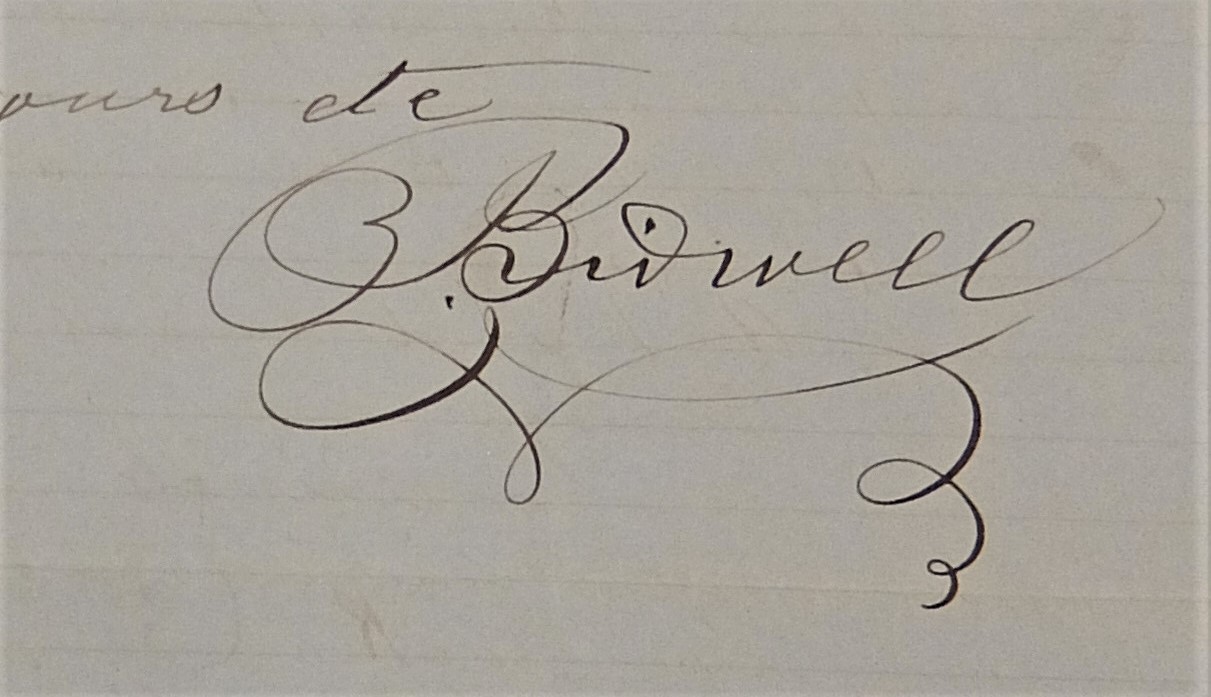 yours etc
Bidwell